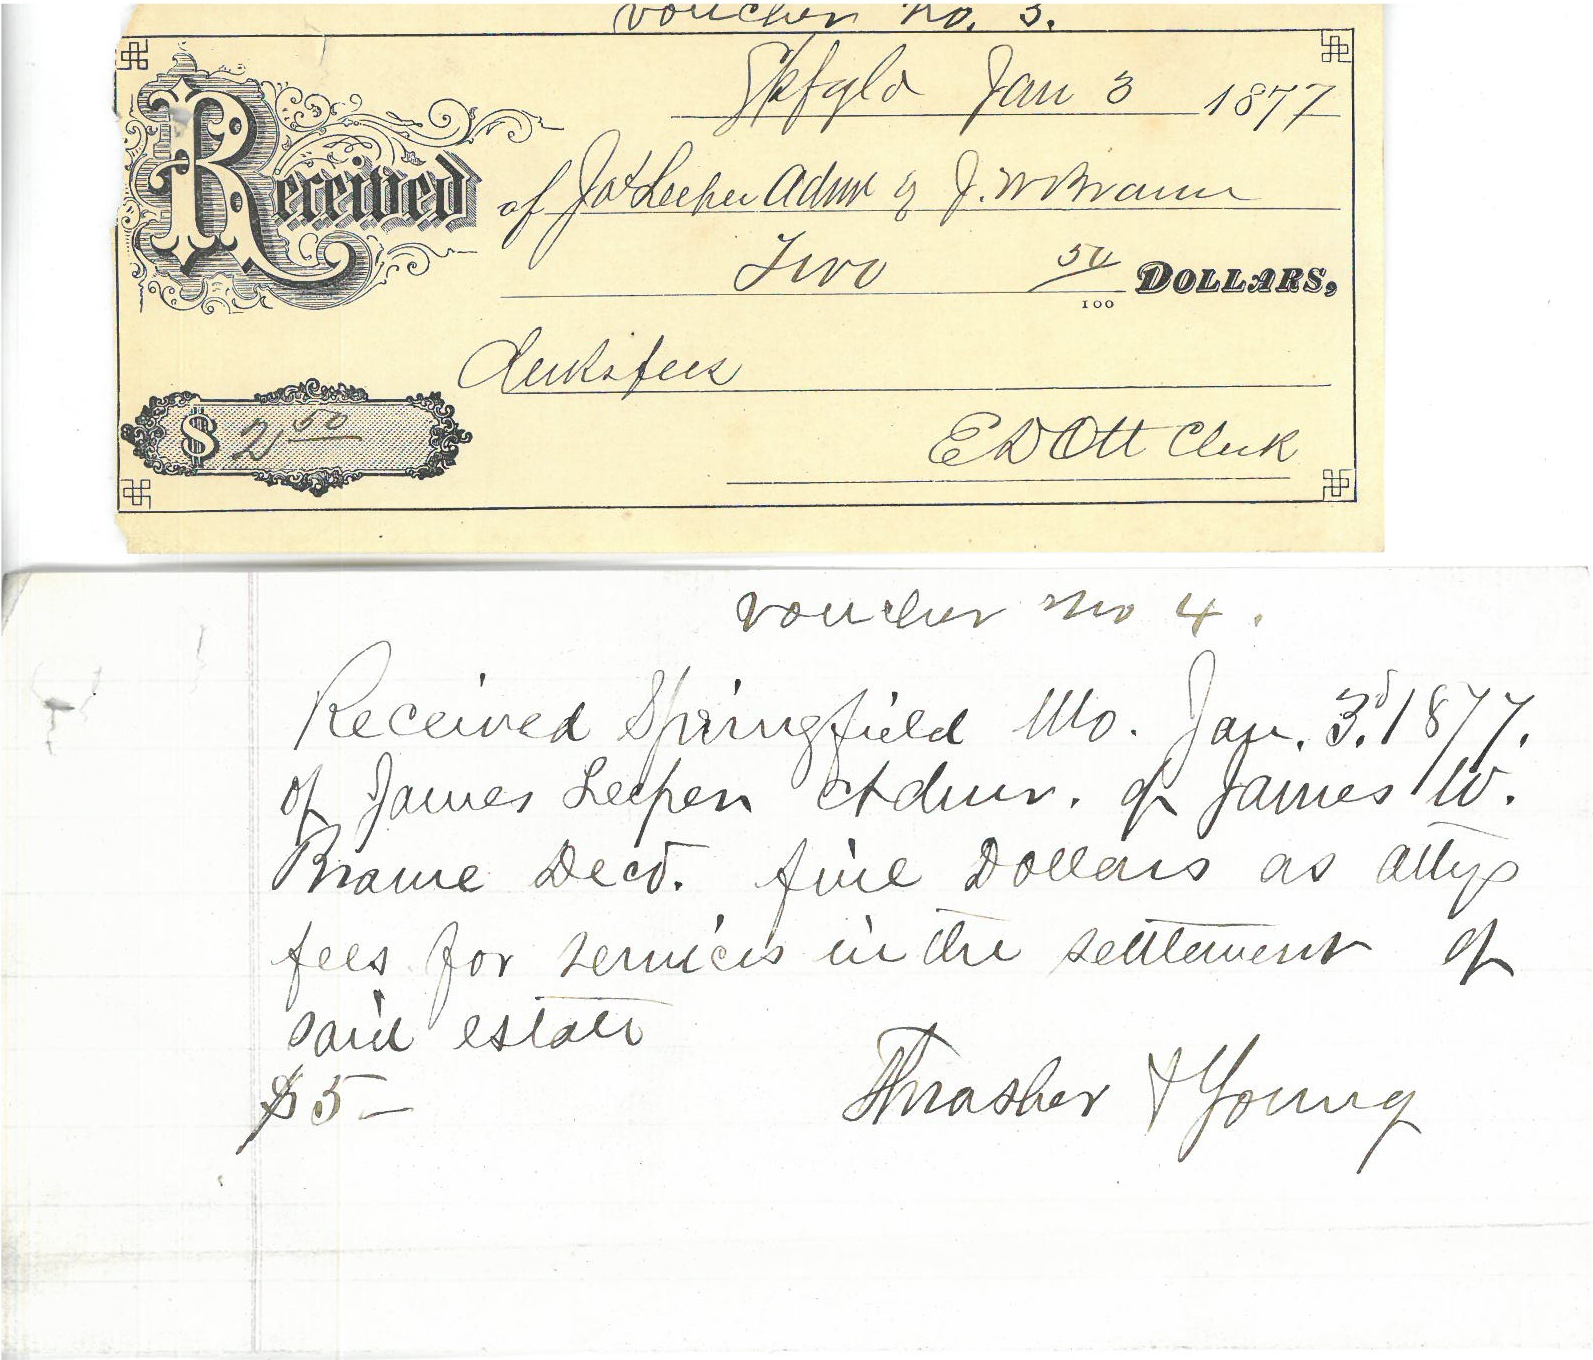 voucher no. 3.
Spfgld Jan 3 1877
Received of Jas Leeper Admr of J. W Brame
Two 50/100 DOLLARS,
Clerks fees
$ 2 50
E D Ott Clerk
voucher no 4.
Received Springfield Mo. Jan. 3d 1877.
of James Leeper Admr. of James W.
Brame Decd. five Dollars as attys
fees for services in the settlement of
said estate
$5—
Thrasher & Young